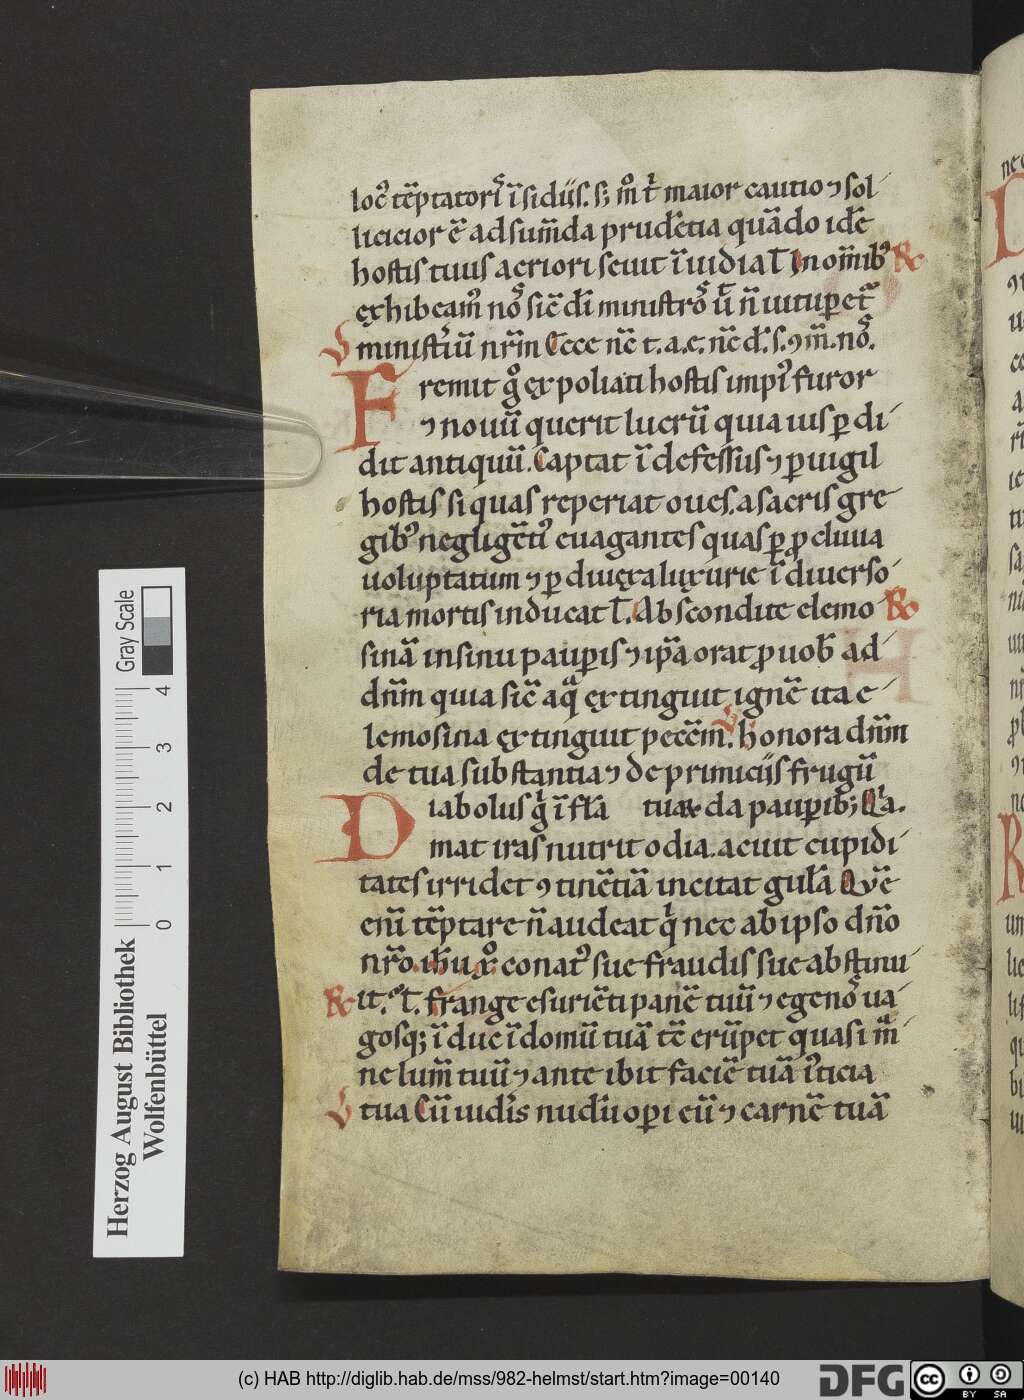 locꝰ tēptatorꝭ īsidiis. sꝫ mͦ t̄ maior cautio ⁊ sol
licicior ē adsum̄da prudētia quādo idē
hostis tuus acriori seuit īuidia t̄ Jn om̄ibꝰ R
exhibeamꝰ noˢ sic̄ dī ministroˢ ut̄ n̄ uitupet᷑
V ministiū nrm̄ Ecce nc̄ t. a. e. nc̄ d. s. ⁊ m̄. noˢ.
Fremit gͦ expoliati hostis impiꝰ furor
⁊ nouū querit lucrū quia ius ꝑdi
dit antiquū. Captat īdefessus ⁊ ꝑuigil
hostis si quas reperiat oues. a sacris gre
gibꝰ negliḡetiꝰ euagantes quas ꝑ ꝓcliuia
uoluptatum ⁊ ꝑ diuexa luxurie ī diuerso
ria mortis inducat t̄. Abscondite elemo R
sinā in sinu pauꝑis ⁊ ip̄a orat ꝓ uob̄ ad
dnm̄ quia sic̄ aq̄ extinguit ignē ita e
lemosina extinguit pecc̄m. V honora dn̄m
de tua substantia ⁊ de primiciis frugū
Diabolus gͥ īflā tuaꝝ da pauꝑibꝫ Qͥa.
mat iras nutrit odia. acuit cupidi
tates irridet ⁊tinētiā incitat gulā Quē
enī tēptare n̄ audeat qͥ nec ab ipso dn̄o
nr̄o ihu xͦ conatꝰ sue fraudis sue abstinu
R it. t̄. frange esuriēti panē tuū ⁊ egenoˢ ua
gosqꝫ īduc ī domū tuā tc̄ erūpet quasi mᷓ
ne lum̄ tuū ⁊ anteibit faciē tuā iꝰticia
V tua Cū uidis nudū oꝑi eū ⁊ carnē tuā
Herzog August Bibliothek
Wolfenbüttel
Gray Scale
0 1 2 3 4
(c) HAB http://diglib.hab.de/mss/982-helmst/start.htm?image=00140
DFG
cc
BY SA